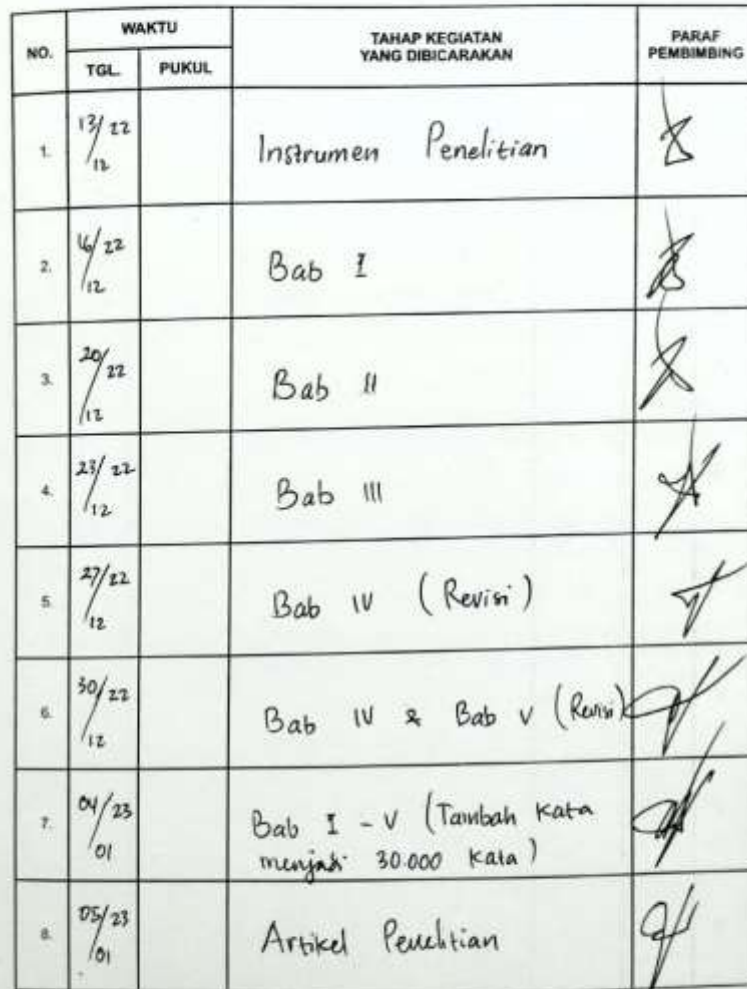 NO.
WAKTU
TAHAP KEGIATAN
YANG DIBICARAKAN
PARAF
PEMBIMBING
TGL.
PUKUL
1.
13/22
12
Instrumen Penelitian
2.
16/22
12
Bab I
3.
20/22
12
Bab II
4.
23/22
12
Bab III
5.
27/22
12
Bab IV (Revisi)
6.
30/22
12
Bab IV & Bab V (Revisi)
7.
04/23
01
Bab I - V (Tambah Kata
menjadi 30.000 Kata)
8.
05/23
01
Artikel Penelitian